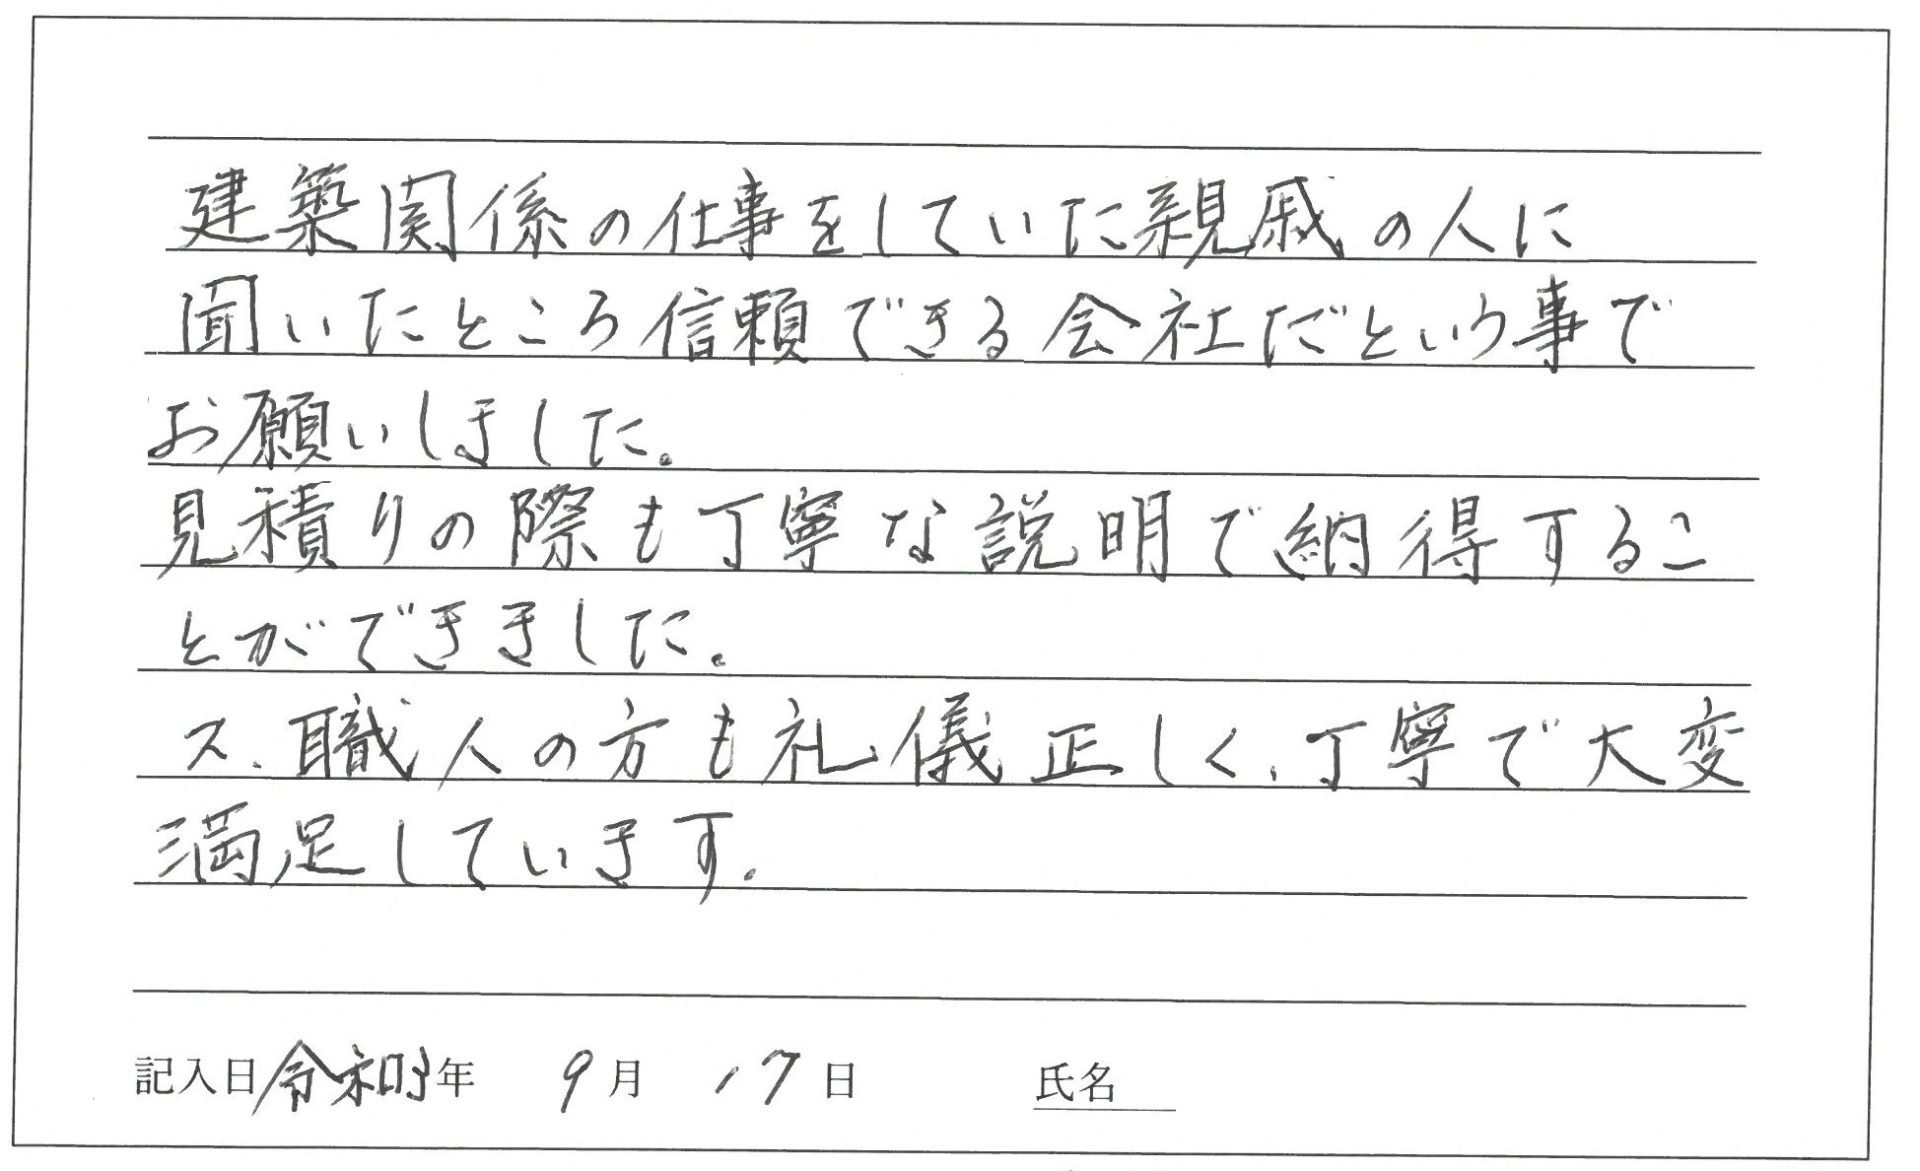 建築関係の仕事をしていた親戚の人に
聞いたところ信頼できる会社だという事で
お願いしました。
見積りの際も丁寧な説明で納得するこ
とができました。
又、職人の方も礼儀正しく、丁寧で大変
満足しています。
記入日 令和3年 9月 17日 氏名